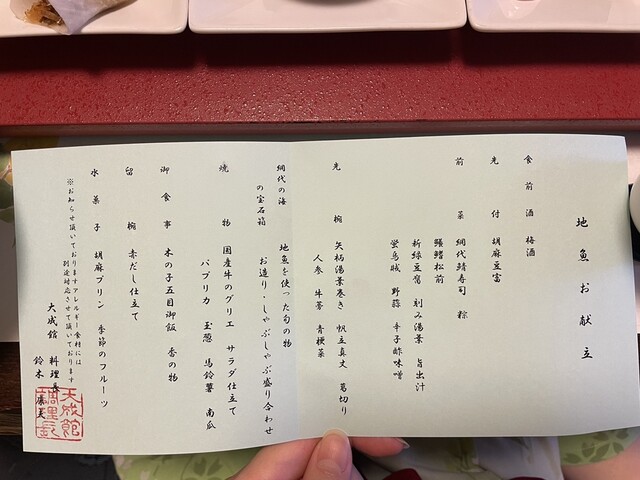 地魚お献立
食前酒 梅酒
先付 胡麻豆富
前菜 網代鯖寿司 粽
鰭松前
新緑豆腐 刻み湯葉 旨出汁
蛍烏賊 野蒜 辛子酢味噌
先椀 矢柄湯葉巻き 帆立真丈 葛切り
人参 牛蒡 青梗菜
網代の海の宝石箱 地魚を使った旬の物
お造り・しゃぶしゃぶ盛り合わせ
焼物 国産牛のグリエ サラダ仕立て
パプリカ 玉葱 馬鈴薯 南瓜
御食事 木の子五目御飯 香の物
留椀 赤だし仕立て
水菓子 胡麻プリン 季節のフルーツ
※お知らせ頂いておりますアレルギー食材には
別途対応させて頂いております
大成館 料理長
鈴木
大成館
調理長